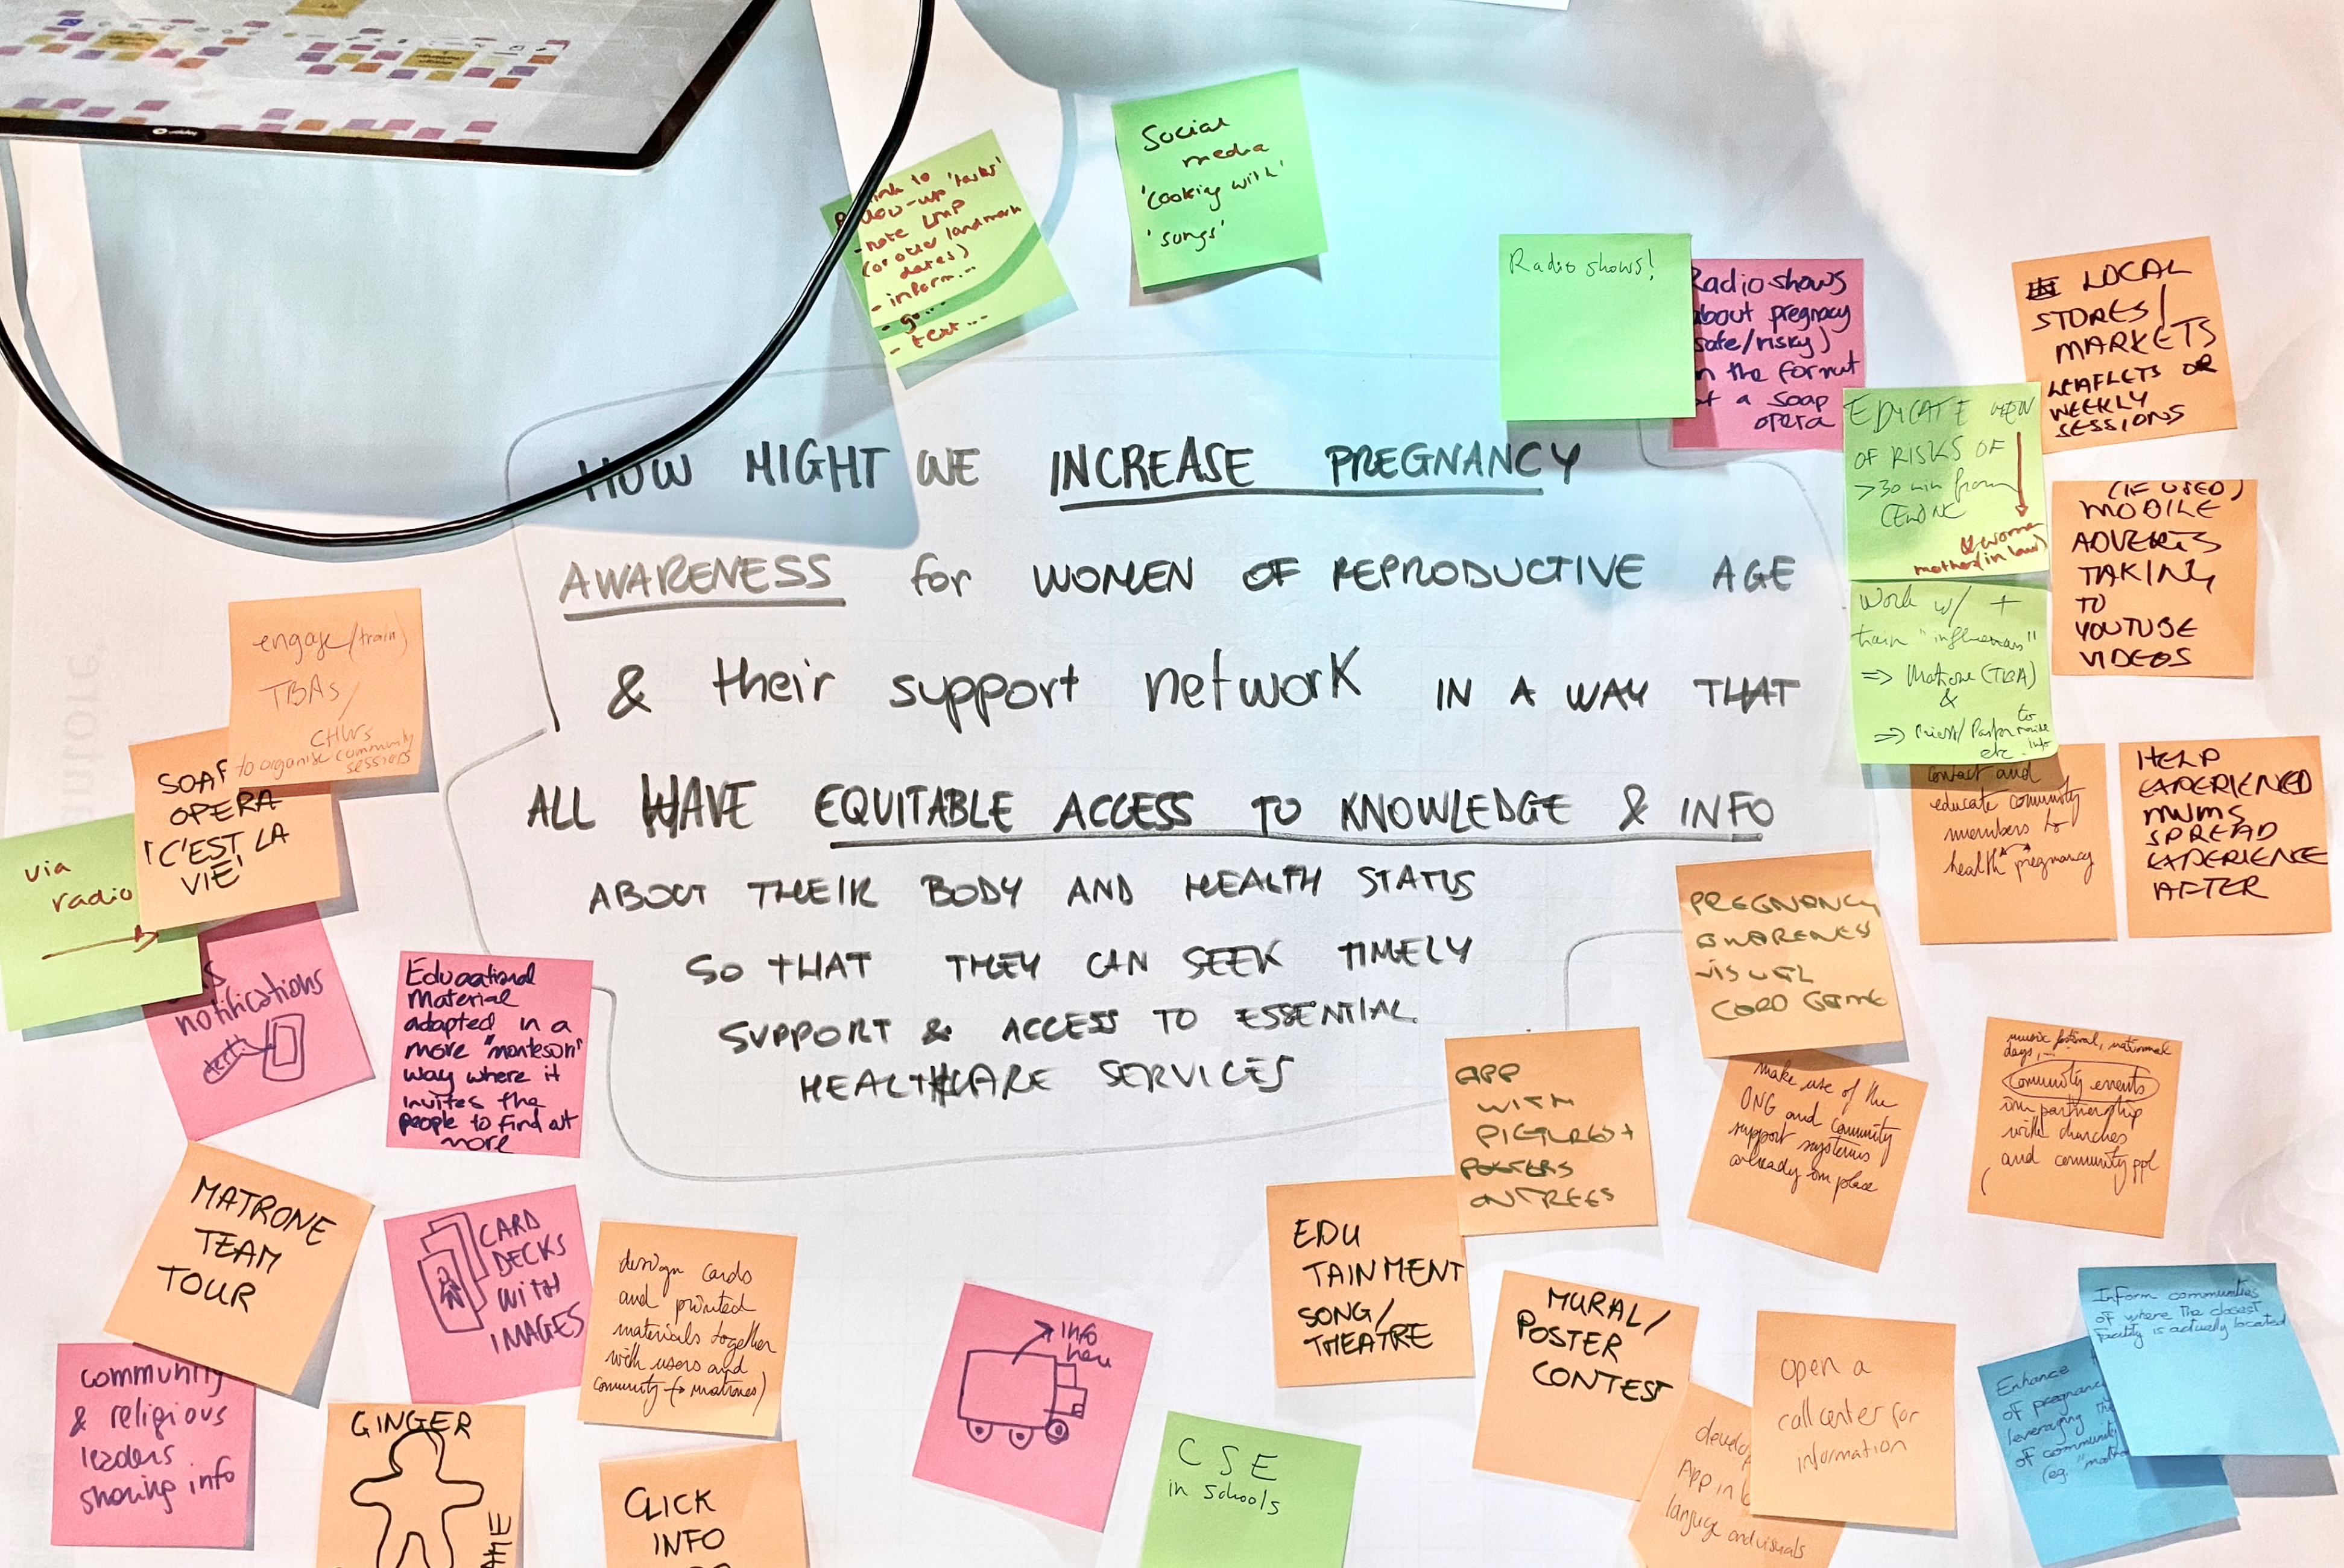 Social
media
'cooking with'
'songs'
- note LMP
(or other landmark
dates)
- inform...
- go...
- text...
Radio shows!
Radio shows
about pregnacy
safe/risky)
in the format
of a soap
opera
LOCAL
STORES/
MARKETS
LEAFLETS OR
WEEKLY
SESSIONS
EDUCATE
OF RISKS OF
>30 min from
& women
mother(in law)
(IF USED)
MOBILE
ADVERTS
TAKING
TO
YOUTUBE
VIDEOS
Work w/ +
train "influencers"
=> Matrone (TBA)
&
=> Priest/Pastor to
etc. info
HOW MIGHT WE INCREASE PREGNANCY
AWARENESS for WOMEN OF REPRODUCTIVE AGE
& their support network IN A WAY THAT
ALL HAVE EQUITABLE ACCESS TO KNOWLEDGE & INFO
ABOUT THEIR BODY AND HEALTH STATUS
SO THAT THEY CAN SEEK TIMELY
SUPPORT & ACCESS TO ESSENTIAL
HEALTHCARE SERVICES
engage (train)
TBAs/
CHWs
to organise community
sessions
SOAP
OPERA
'C'EST LA
VIE'
via
radio
notifications
Educational
Material
adapted in a
more "montesori"
way where it
invites the
people to find out
more
contact and
educate comunity
members to
health pregnancy
HELP
EXPERIENCED
MUMS
SPREAD
EXPERIENCE
AFTER
PREGNANCY
AWARENESS
VISUAL
CARD GAME
APP
WITH
PICTURES +
POSTERS
ON TREES
make use of the
ONG and Comunity
support systems
already in place
music festival, national
days,...
Comunity events
in partnership
with churches
and comunity ppl
MATRONE
TEAM
TOUR
CARD
DECKS
WITH
IMAGES
design cards
and printed
materials together
with users and
comunity (+ matrones)
EDU
TAINMENT
SONG/
THEATRE
MURAL/
POSTER
CONTEST
open a
call center for
information
Inform communities
of where the closest
facility is actually located
Enhance
of pregnancy
leveraging the
of community
community
& religious
leaders
sharing info
GINGER
CLICK
INFO
info
here
CSE
in schools
develop
App in
language and visuals